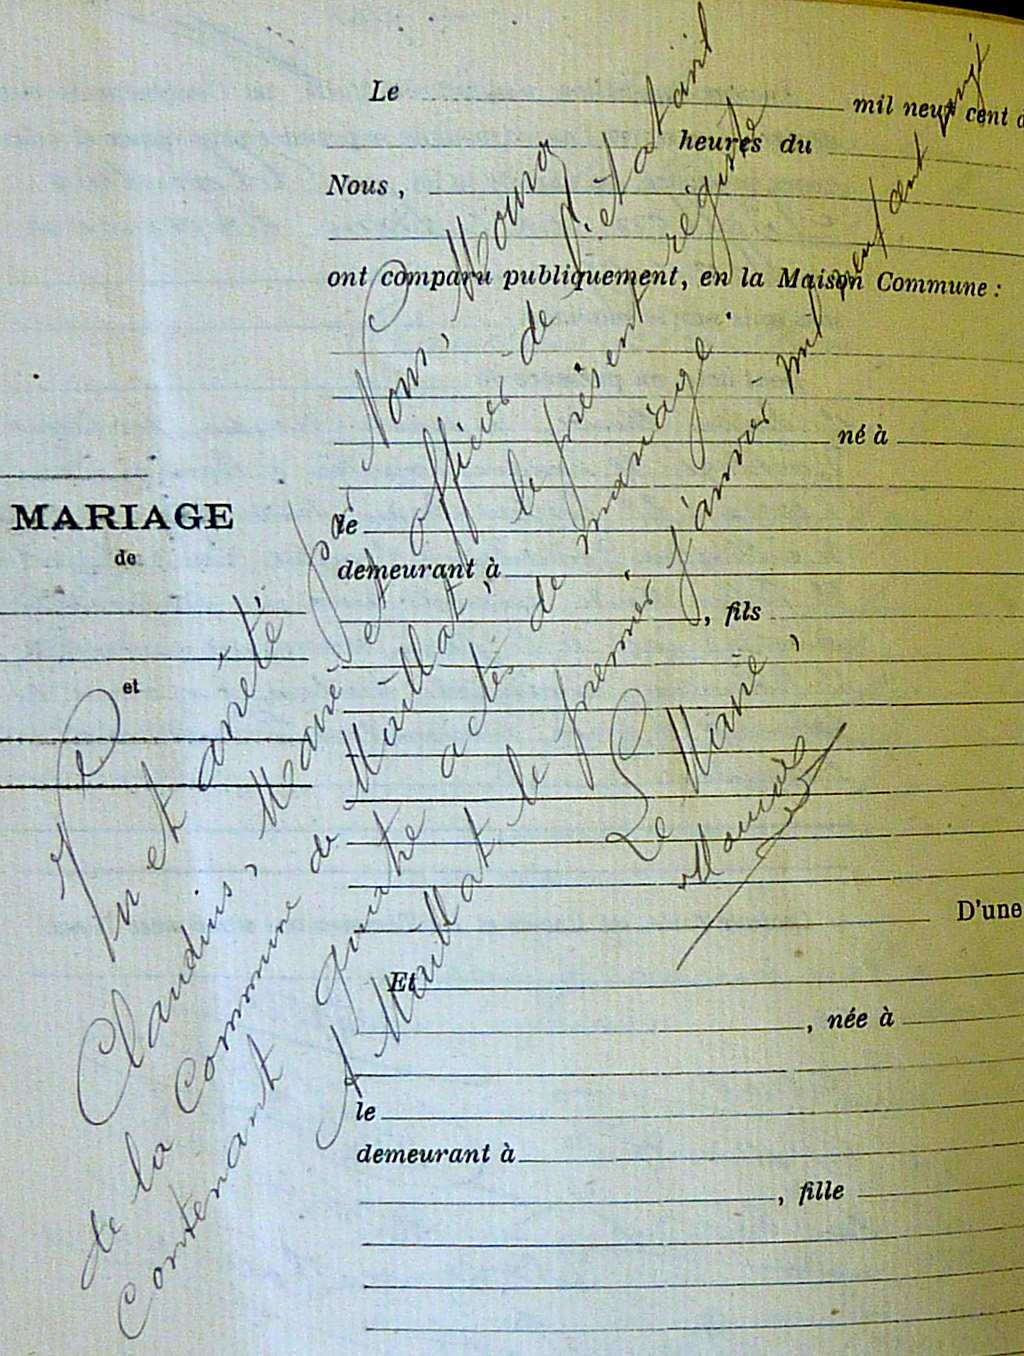 Le mil neuf cent
heures du
Nous,
ont comparu publiquement, en la Maison Commune :
né à
MARIAGE
de
et
le
demeurant à
, fils
D'une
Et
, née à
le
demeurant à
, fille
Vu et arrêté, par Nous,
Claudius, Maire et officier de l'état civil
de la Commune de Maillat, le présent régistre
Contenant quatre actes de mariage.
A Maillat le premier janvier mil neuf cent vingt
Le Maire,